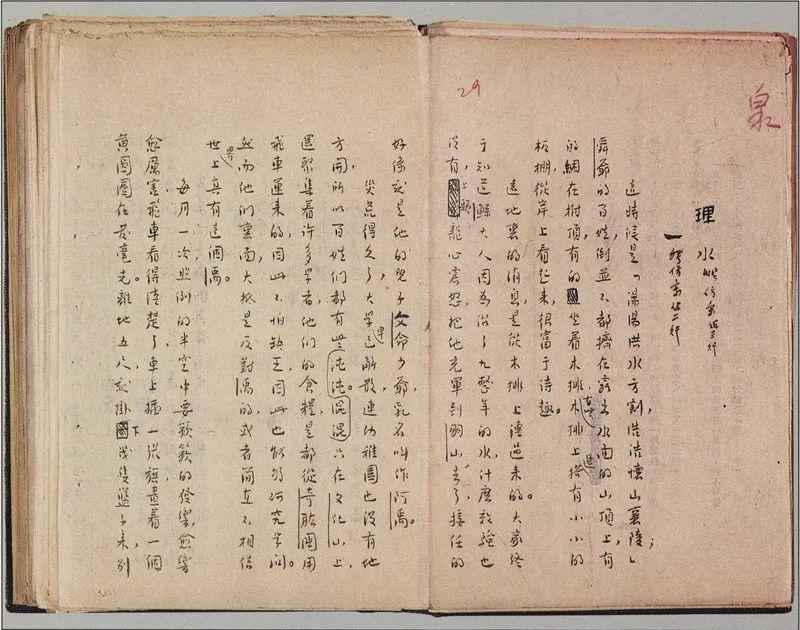 泉
29
理 水
一
這時候是「湯湯洪水方割,浩浩懷山襄陵」;
舜爺的百姓,倒並不都擠在露出水面的山頂上,有
的綑在樹頂,有的坐着木排,有些木排上還搭有小小的
板棚,從岸上看起來,很富于詩趣。
遠地裏的消息,是從木排上傳過來的。大家終
于知道鯀大人因為治了九整年的水,什麼效驗也
沒有,上頭龍心震怒,把他充軍到羽山去了,接任的
好像就是他的兒子文命少爺,乳名叫作阿禹。
災荒得久了,大學早已解散,連幼稚園也沒有地
方開,所以百姓們都有些沌沌混混。只在文化山上,
還聚集着許多學者,他們的食糧,是都從奇肱國用
飛車運來的,因此不怕缺乏,因此也能夠研究學問。
然而他們裏面,大抵是反對禹的,或者簡直不相信
世上真有這個禹。
每月一次,照例的半空中要簌簌的發響,愈響
愈厲害,飛車看得清楚了,車上插一張旗,畫着一個
黃圓圈在發毫光。離地五尺,就掛下幾隻籃子來,別